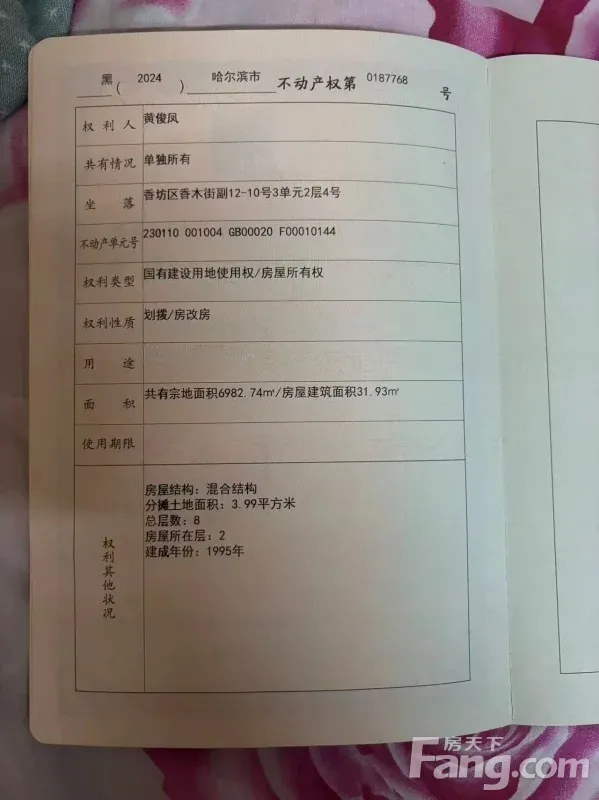 黑（ 2024 ） 哈尔滨市 不动产权第 0187768 号
权利人 黄俊凤
共有情况 单独所有
坐落 香坊区香木街副12-10号3单元2层4号
不动产单元号 230110 001004 GB00020 F00010144
权利类型 国有建设用地使用权/房屋所有权
权利性质 划拨/房改房
用途
面积 共有宗地面积6982.74㎡/房屋建筑面积31.93㎡
使用期限
权利其他状况
房屋结构：混合结构
分摊土地面积：3.99平方米
总层数：8
房屋所在层：2
建成年份：1995年
房天下
Fang.com